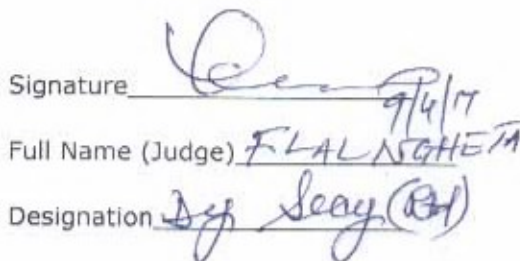 Signature
9/4/17
Full Name (Judge) F LALNGHETA
Designation Dy Secy (Rtd)